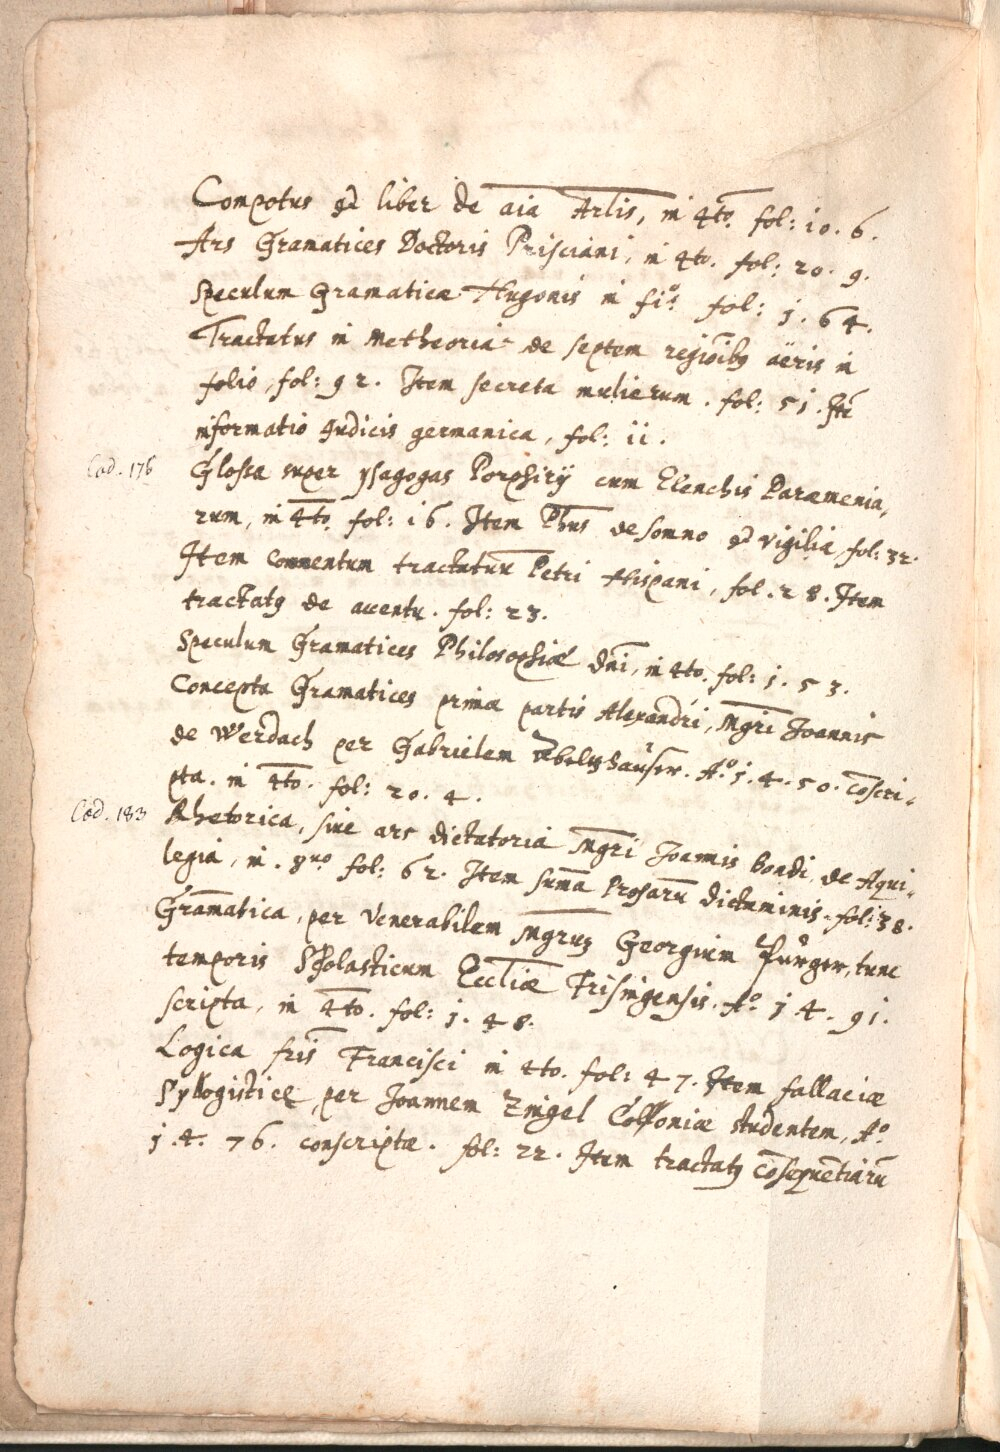 Compotus et liber de aīa Ar̄lis, in 4to. fol: 10. 6.
Ars Gramatices Doctoris Prisciani, in 4to. fol: 20. 9.
Speculum Gramaticæ Hugonis in fio. fol: 1. 64.
Tractatus in Metheoria de septem regiōibꝯ aëris in
folio, fol: 92. Item secreta mulierum. fol: 51. Itē
informatio Judicis germanica, fol: 11.
Cod. 176
Glossa super ysagogas Porphirij cum Elenchis Paræmenia,
rum, in 4to. fol: 16. Item Ph̄us de somno et vigilia, fol: 32.
Item Commentum tractatuū Petri Hispani, fol. 28. Item
tractatꝯ de accentu. fol: 23.
Speculum Gramatices Philosophiæ dn̄i, in 4to. fol: 1. 53.
Concepta Gramatices primæ partis Alexandri, Mgr̄i Joannis
de Werdach per Gabrielem Ebeltzhauser. Ao. 1. 4. 50. cōscri,,
pta. in 4to. fol: 20. 4.
Cod. 183
Rhetorica, sive ars dictatoria Mgr̄i Joannis bondi, de Aqui,,
legia, in. 8uo fol: 62. Item sum̄a Prosarū dictaminis. fol: 38.
Gram̄atica, per Venerabilem Mgruȝ Georgium Pürger, tunc
temporis Scholasticum Eccl̄iæ Frisingensis. Ao. 1. 4. 91.
scripta, in 4to. fol: 1. 48.
Logica fr̄is Francisci in 4to. fol: 47. Item fallaciæ
Syllogisticę, per Joannem Zingel Colloniæ studentem, Ao.
1. 4. 76. conscriptæ. fol: 22. Item tractatꝯ cōsequētiarū